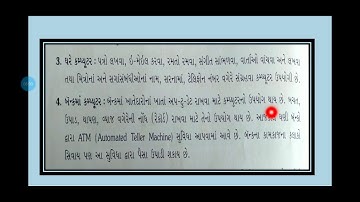 3. ઘરે કમ્પ્યુટર : પત્રો લખવા, ઇ-મેઇલ કરવા, રમતો રમવા, સંગીત સાંભળવા, વાર્તાઓ વાંચવા અને લખવા
તથા મિત્રોનાં અને સગાંસંબંધીઓનાં નામ, સરનામાં, ટેલિફોન નંબર વગેરે સંગ્રહવા કમ્પ્યુટર ઉપયોગી છે.
4. બૅન્કમાં કમ્પ્યુટર : બૅન્કમાં ખાતેદારોનાં ખાતાં અપ-ટુ-ડેટ રાખવા માટે કમ્પ્યુટરનો ઉપયોગ થાય છે. બચત,
ઉપાડ, થાપણ, વ્યાજ વગેરેની નોંધ (રેકોર્ડ) રાખવા માટે તેનો ઉપયોગ થાય છે. આજકાલ ઘણી બૅન્કો
દ્વારા ATM (Automated Teller Machine) સુવિધા આપવામાં આવે છે. બૅન્કના કામકાજના કલાકો
સિવાય પણ આ સુવિધા દ્વારા પૈસા ઉપાડી શકાય છે.